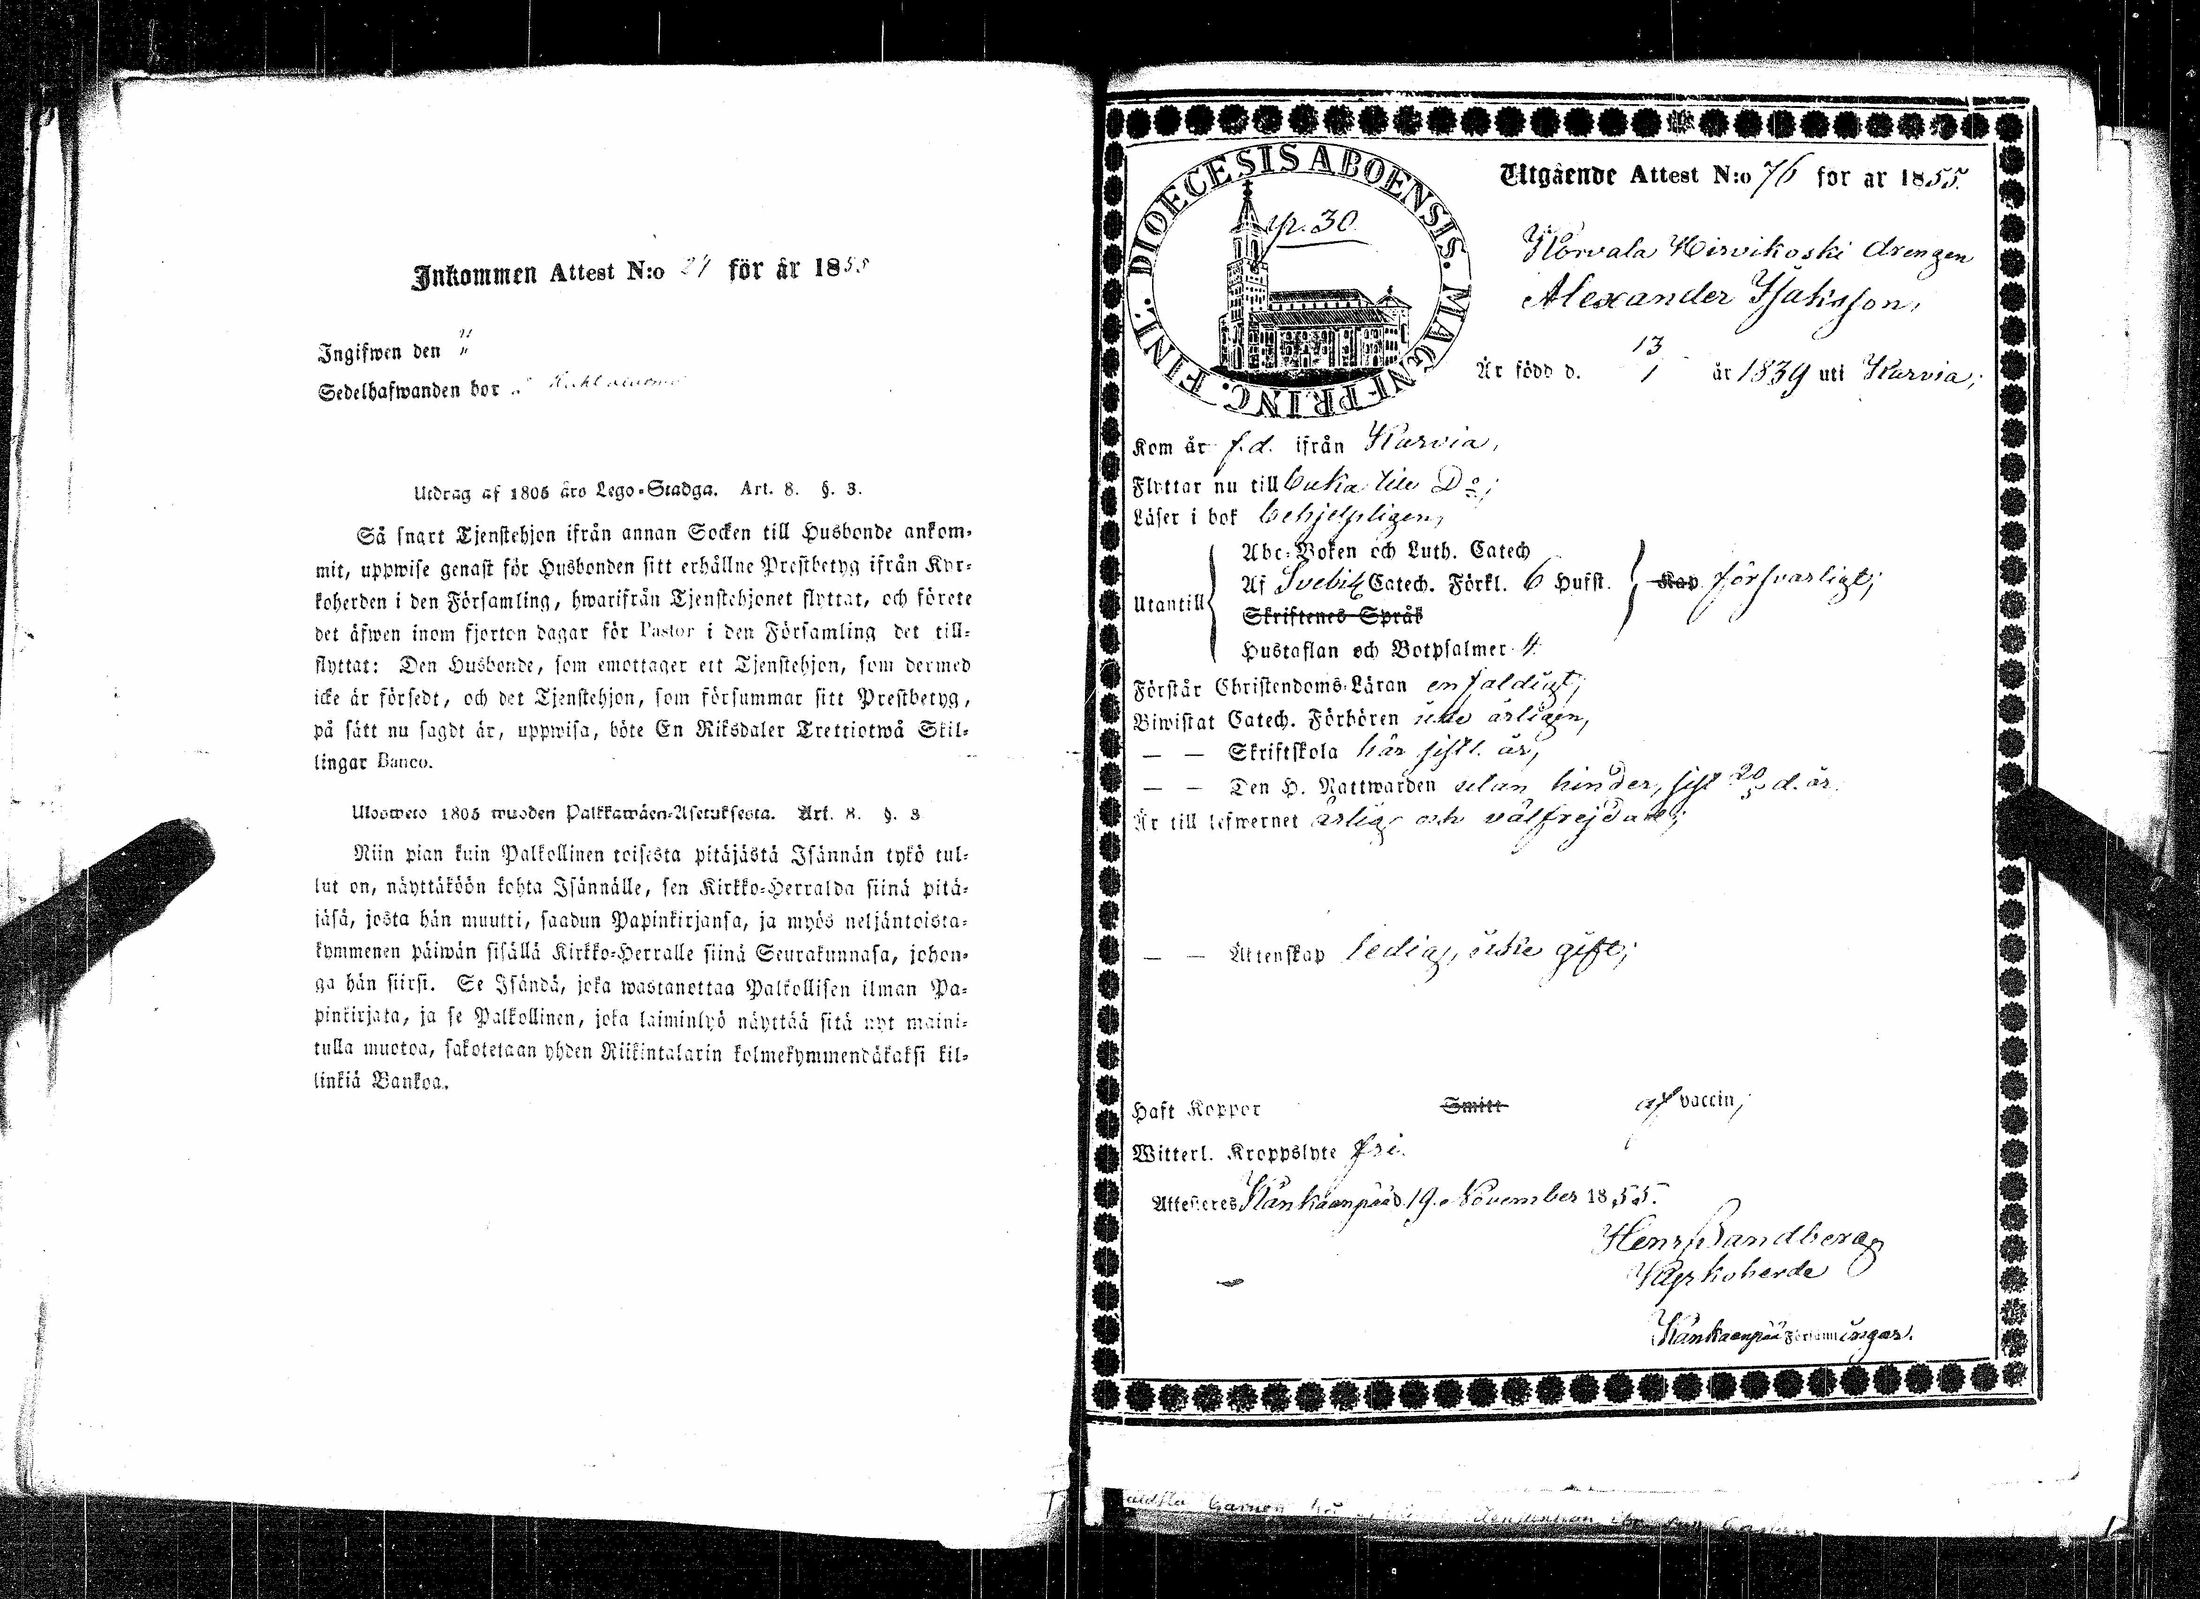 Inkommen Attest N:o 24 för år 1855
Ingifwen den "
Sedelhafwanden bor
Utdrag af 1805 års Lego-Stadga. Art. 8. §. 3.
Så snart Tjenstehjon ifrån annan Socken till Husbonde ankom-
mit, uppwise genast för Husbonden sitt erhållne Prestbetyg ifrån Kyr-
koherden i den Församling, hwarifrån Tjenstehjonet flyttat, och förete
det äfwen inom fjorton dagar för Pastor i den Församling det till-
flyttat: Den Husbonde, som emottager ett Tjenstehjon, som dermed
icke är försedt, och det Tjenstehjon, som försummar sitt Prestbetyg,
på sätt nu sagdt är, uppwisa, böte En Riksdaler Trettiotwå Skil-
lingar Banco.
Ulosweto 1805 wuoden Palkkawäen-Asetuksesta. Art. 8. §. 3
Niin pian kuin Palkollinen toisesta pitäjästä Isännän tykö tul-
lut on, näyttäköön kohta Isännälle, sen Kirkko-Herralda siinä pitä-
jäsä, josta hän muutti, saadun Papinkirjansa, ja myös neljäntoista-
kymmenen päiwän sisällä Kirkko-Herralle siinä Seurakunnasa, johon-
ga hän siirsi. Se Isändä, joka wastanottaa Palkollisen ilman Pa-
pinkirjata, ja se Palkollinen, joka laiminlyö näyttää sitä nyt maini-
tulla muotoa, sakotetaan yhden Riikintalarin kolmekymmendäkaksi kil-
linkiä Bankoa.
DIOECESIS ABOENSIS. MAGNI PRINC. FINL.
p. 30
Utgående Attest N:o 76 för år 1855.
Korvala Hirvikoski drengen
Alexander Isaksson,
Är född d. 13/1 år 1839 uti Karvia;
Kom år f.d. ifrån Karvia,
Flyttar nu till buka till Do;
Läser i bok behjelpligen,
Utantill
Abc-Boken och Luth. Catech
Af Svebil. Catech. Förkl. 6 Hufst. Kap försvarligt;
Skriftenes Språk
Hustaflan och Botpsalmer 4
Förstår Christendoms-Läran enfaldigt;
Biwistat Catech. Förhören icke årligen,
— — Skriftskola här sistl. år,
— — Den H. Nattwarden utan hinder, sist 20/5 d. år.
Är till lefwernet ärlig och välfrejdad;
— — Äktenskap ledig, icke gift;
Haft Koppor Smitt af vaccin;
Witterl. Kroppslyte fri.
Attesteres Kankaanpää d. 19. November 1855.
Henr. Sandberg
Kyrkoherde
Kankaanpää Församlingar.